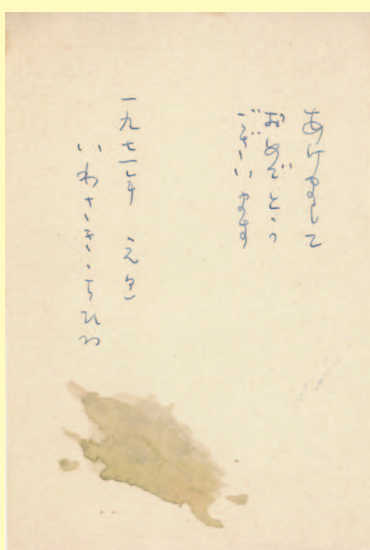 あけまして
おめでとう
ございます
一九七一年 元旦
いわさきちひろ